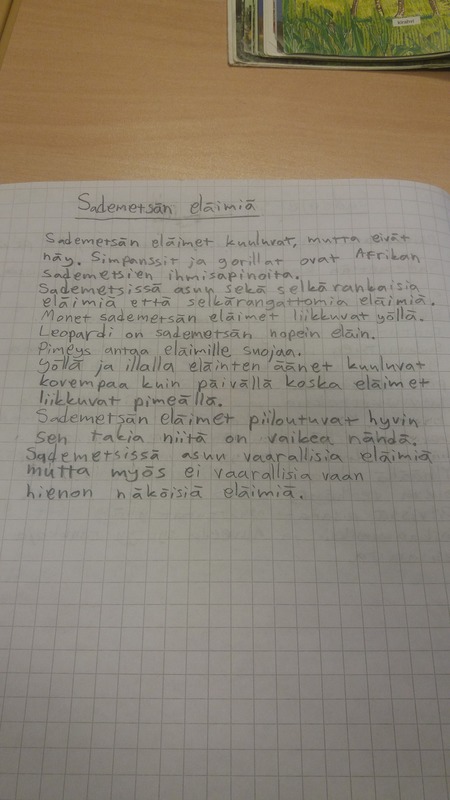 Sademetsän eläimiä
Sademetsän eläimet kuuluvat, mutta eivät
näy. Simpanssit ja gorillat ovat Afrikan
sademetsien ihmisapinoita.
Sademetsissä asuu sekä selkärankaisia
eläimiä että selkärangattomia eläimiä.
Monet sademetsän eläimet liikkuvat yöllä.
Leopardi on sademetsän nopein eläin.
Pimeys antaa eläimille suojaa.
Yöllä ja illalla eläinten äänet kuuluvat
kovempaa kuin päivällä koska eläimet
liikkuvat pimeällä.
Sademetsän eläimet piiloutuvat hyvin
sen takia niitä on vaikea nähdä.
Sademetsissä asuu vaarallisia eläimiä
mutta myös ei vaarallisia vaan
hienon näköisiä eläimiä.